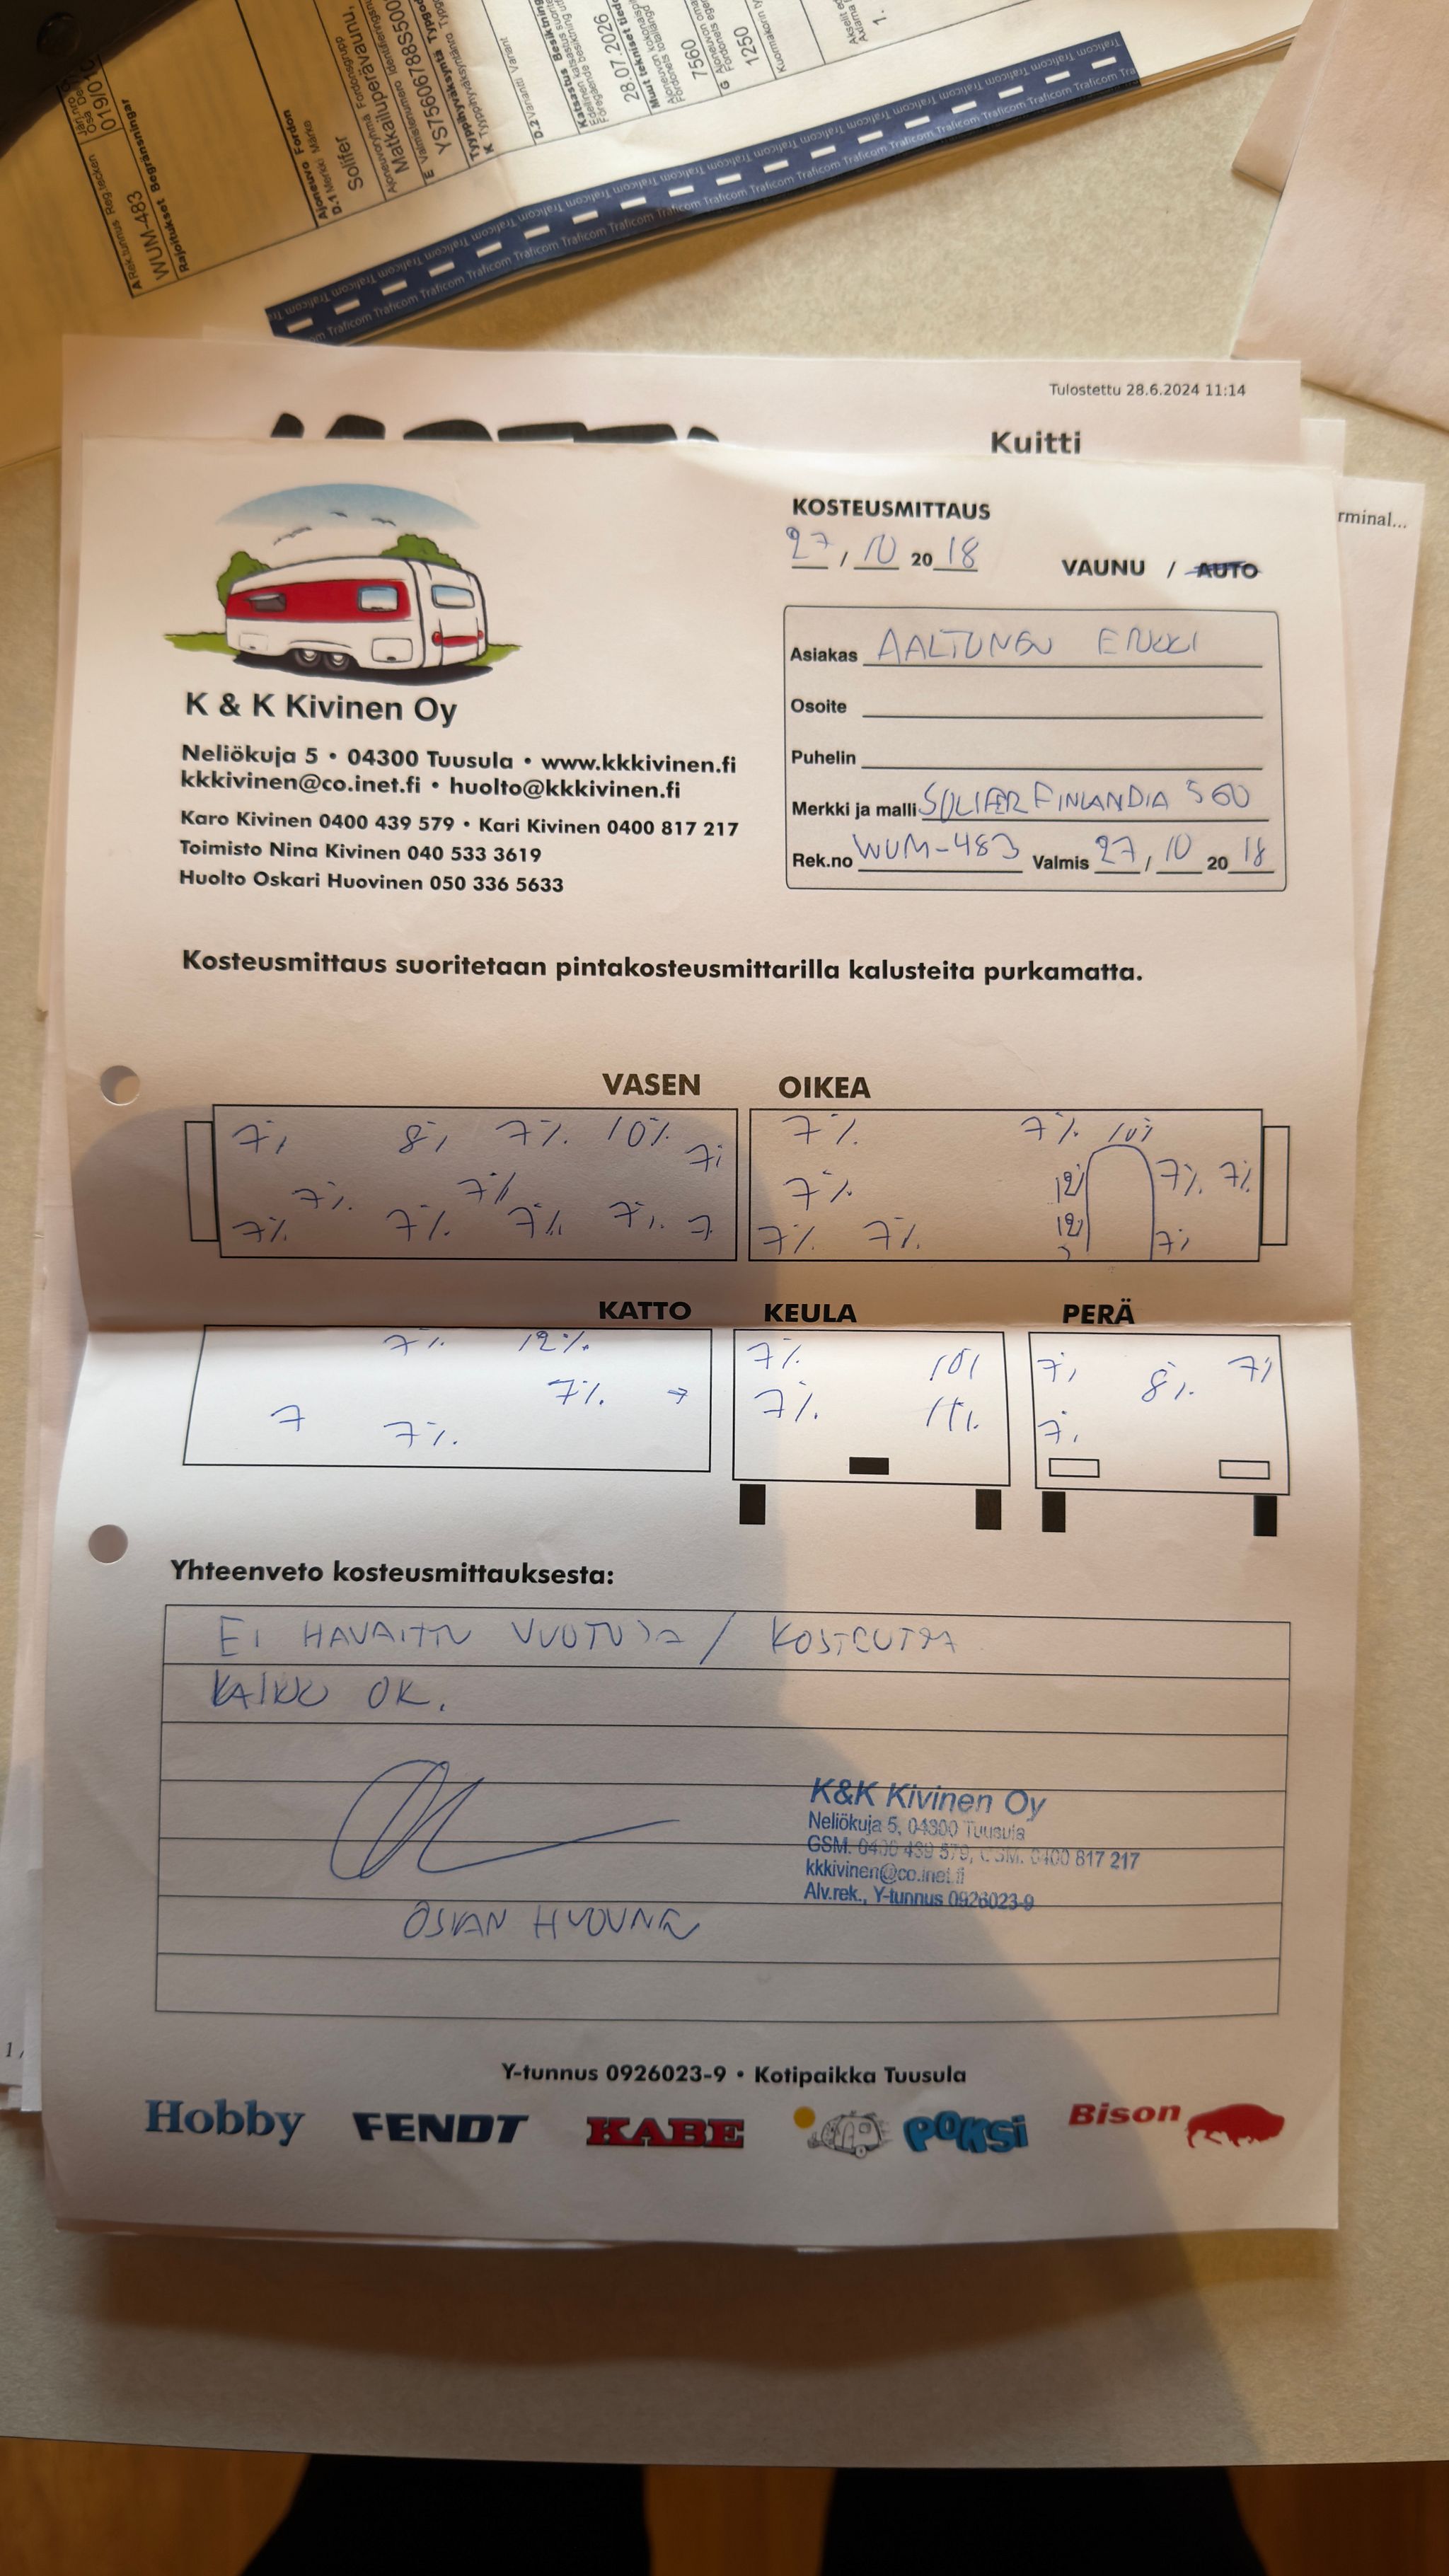 A Rek.tunnus Reg.tecken
WUM-483
019/01C
Rajoitukset Begränsningar
Ajoneuvo Fordon
D.1 Merkki Märke
Solifer
Ajoneuvoryhmä Fordonsgrupp
Matkailuperävaunu,
E Valmistenumero
YS75606788S500
Tyyppihyväksyntä
K Tyyppihyväksyntänro
D.2 Variantti Variant
Katsastus Besiktning
28.07.2026
Muut tekniset tiedot
7560
G
1250
1.
Traficom Traficom Traficom Traficom Traficom Traficom Traficom Traficom Traficom Traficom
Tulostettu 28.6.2024 11:14
Kuitti
rminal...
KOSTEUSMITTAUS
27 / 10 20 18
VAUNU / AUTO
Asiakas AALTONEN ERKKI
Osoite
Puhelin
Merkki ja malli SOLIFER FINLANDIA 560
Rek.no WUM-483 Valmis 27 / 10 20 18
K & K Kivinen Oy
Neliökuja 5 • 04300 Tuusula • www.kkkivinen.fi
kkkivinen@co.inet.fi • huolto@kkkivinen.fi
Karo Kivinen 0400 439 579 • Kari Kivinen 0400 817 217
Toimisto Nina Kivinen 040 533 3619
Huolto Oskari Huovinen 050 336 5633
Kosteusmittaus suoritetaan pintakosteusmittarilla kalusteita purkamatta.
VASEN OIKEA
7% 8% 7% 10% 7% 7% 7% 10%
7% 7% 7% 12% 7% 7%
7% 7% 7% 7% 7 7% 7% 12% 7%
KATTO KEULA PERÄ
7% 12% 7% 10% 7% 8% 7%
7% → 7% 11% 7%
7 7%
Yhteenveto kosteusmittauksesta:
EI HAVAITTU VUOTOJA / KOSTEUTTA
KAIKKI OK.
K&K Kivinen Oy
Neliökuja 5, 04300 Tuusula
GSM. 0400 439 579, GSM. 0400 817 217
kkkivinen@co.inet.fi
Alv.rek., Y-tunnus 0926023-9
OSKARI HUOVINEN
Y-tunnus 0926023-9 • Kotipaikka Tuusula
Hobby FENDT KABE POKSI Bison
1 /